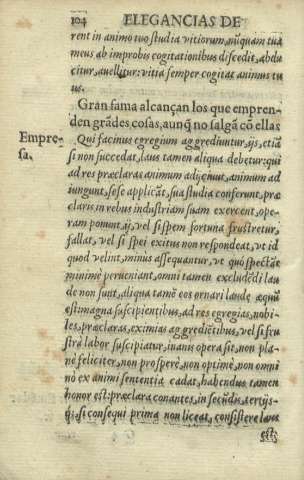 104 ELEGANCIAS DE
rent in animo tuo studia vitiorum, nũquam tuũ
meus ab improbis cogitationibus discedit, abdu
citur, auellitur: vitia semper cogitat animus tu
us.
Gran fama alcançan los que empren-
den grãdes cosas, aunq̃ no salgã cõ ellas
Empre-
sa.
Qui facinus egregium aggrediuntur, ijs, etiã
si non succedat, laus tamen aliqua debetur: qui
ad res præclaras animum adijciunt, animum ad
iungunt, sese applicãt, sua studia conferunt, præ
claris in rebus industriam suam exercent, ope-
ram ponunt, ij, vel si spem fortuna frustretur,
fallat, vel si spei exitus non respondeat, vt id
quod velint, minus assequantur, vt quò spectãt
minimè perueniant, omni tamen excludẽdi lau
de non sunt, aliqua tamẽ eos ornari laude æquũ
est: magna suscipientibus, ad res egregias, nobi-
les, præclaras, eximias aggrediẽtibus, vel si fru-
stra labor suscipiatur, inanis opera sit, non pla-
nè feliciter, non prosperè, non optimè, non omni
nò ex animi sententia cadat, habendus tamen
honor est: præclara conantes, in secũdis, tertijs-
q́; si consequi prima non liceat, consistere laus
est;